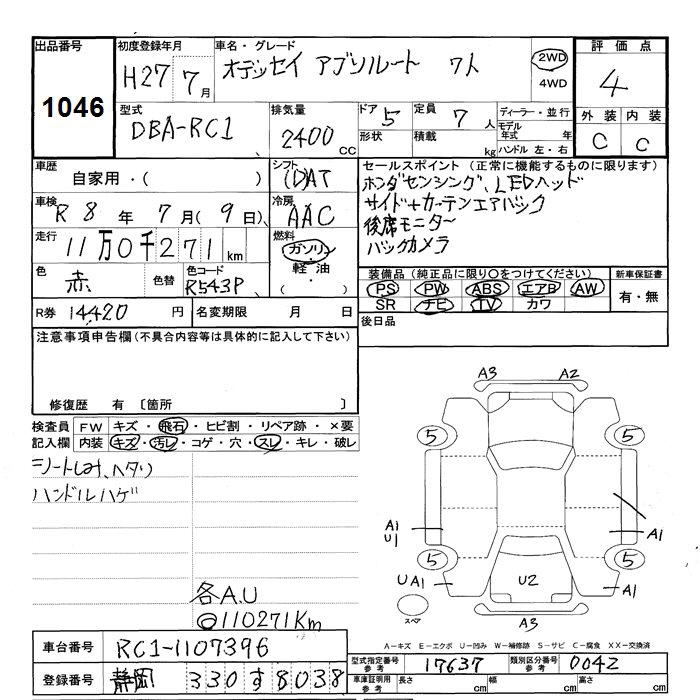 出品番号 初度登録年月 車名・グレード 評価点
1046 H27年7月 オデッセイ アブソルート 7人 2WD 4WD 4
型式 排気量 ドア 5 定員 7人 ディーラー・並行 外装 内装
DBA-RC1 2400cc 形状 積載 kg モデル年式 年 C C
ハンドル 左・右
車歴 自家用・( ) シフト (D)AT セールスポイント (正常に機能するものに限ります)
ホンダセンシング、LEDヘッド
車検 R8年7月(9日) 冷房 AAC サイド+カーテンエアバック
後席モニター
走行 11万0千271km 燃料 ガソリン・軽油・( ) バックカメラ
色 赤 色替 色コード R543P 装備品 (純正品に限り○をつけてください) 新車保証書
PS PW ABS エアB AW 有・無
SR ナビ TV カワ
R券 14420円 名変期限 月 日 後日品
注意事項申告欄(不具合内容等は具体的に記入して下さい)
修復歴 有 〔箇所 〕
検査員 FW キズ・飛石・ヒビ割・リペア跡・×要
記入欄 内装 キズ・汚レ・コゲ・穴・スレ・キレ・破レ
シートしみ、ヘタリ
ハンドルハゲ
各A.U
◎110271Km
A3 A2
5 5
A1 U1 A1
5 5
UA1 U2 A1
スペア A3
A-キズ E-エクボ U-凹み W-補修跡 S-サビ C-腐食 XX-交換済
車台番号 RC1-1107396 型式指定番号 参考 17637 類別区分番号 参考 0042
登録番号 静岡 330す8038 車庫証明用 参考 長さ cm 幅 cm 高さ cm